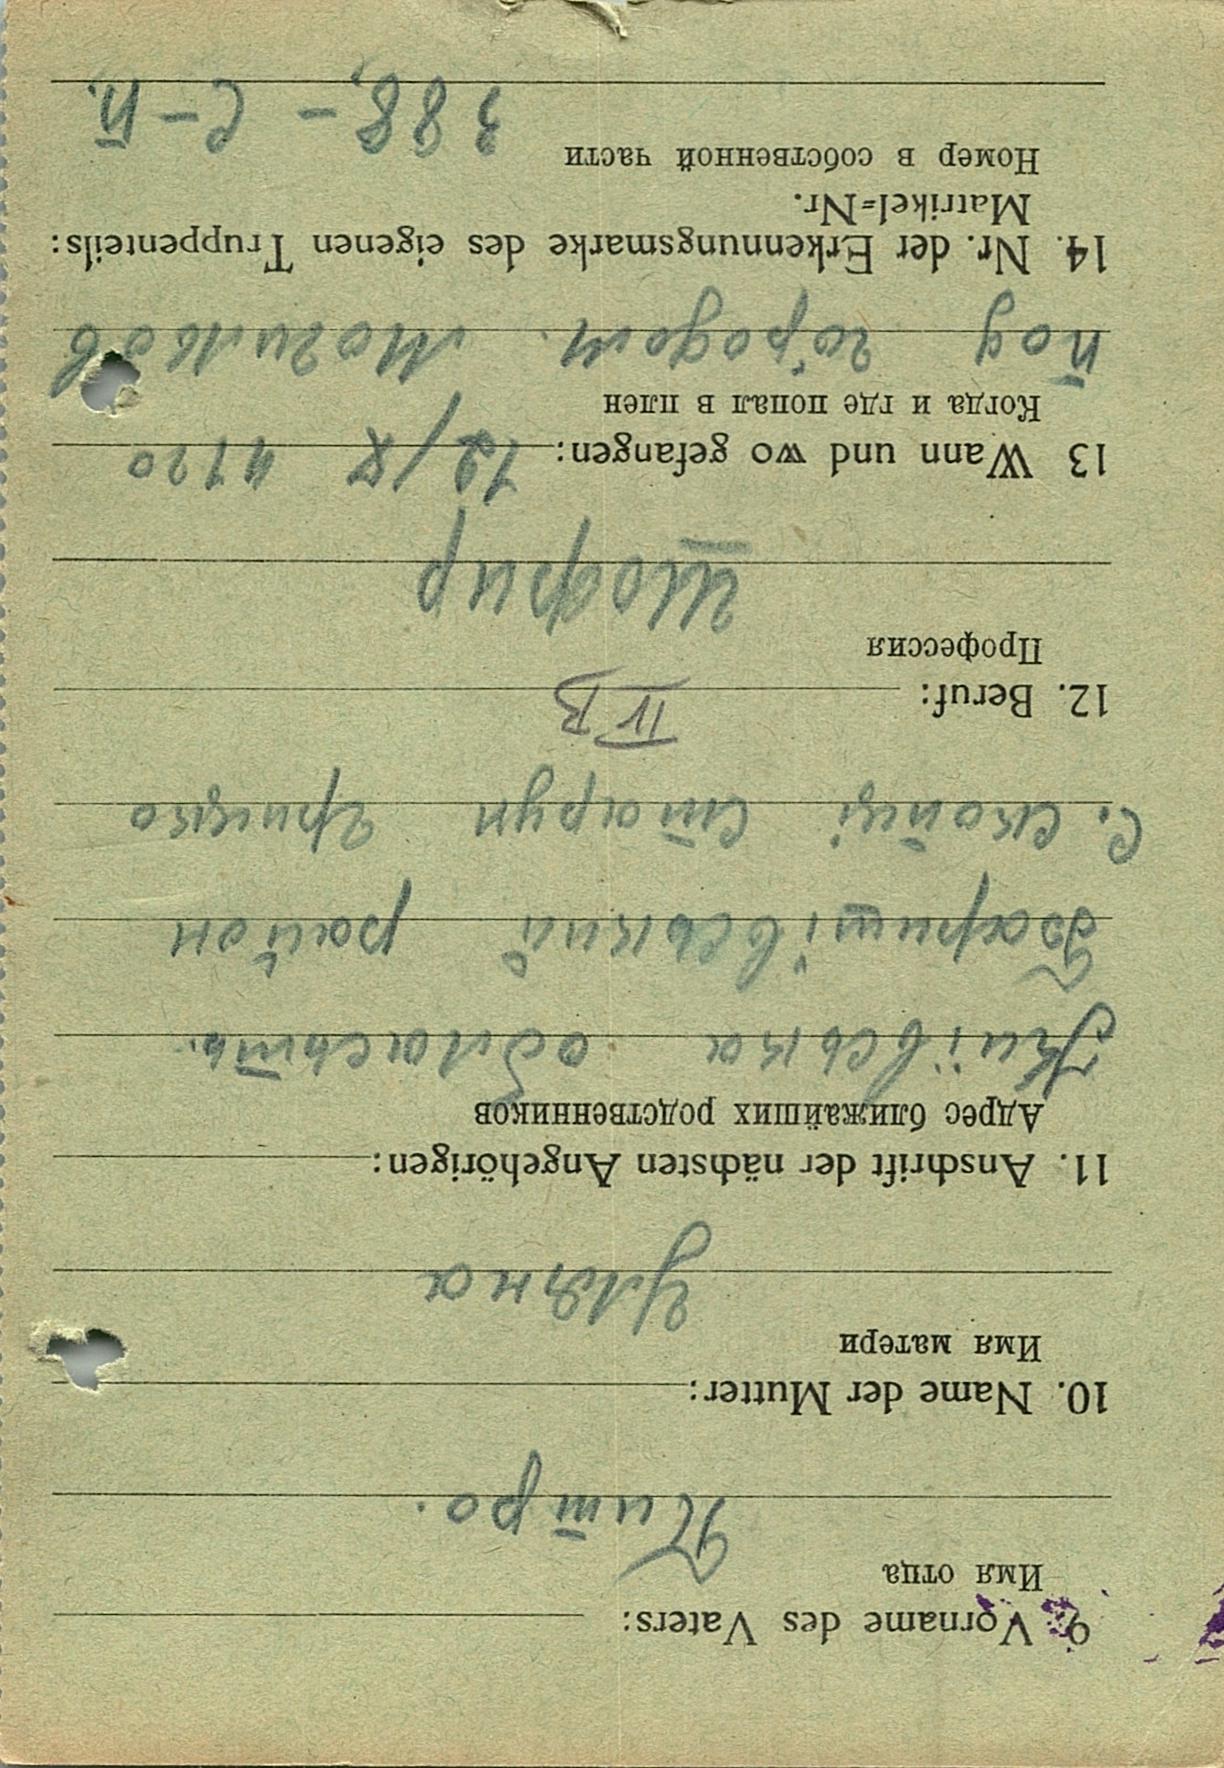 9. Vorname des Vaters:
Имя отца
Питро.
10. Name der Mutter:
Имя матери
Уляна
11. Anschrift der nächsten Angehörigen:
Адрес ближайших родственников
Київська обласьть.
Баришівський район
С. Скопці Стоярун Грицко
IV B
12. Beruf:
Профессия
Шофир
13 Wann und wo gefangen: 12/X 41 го
Когда и где попал в плен
под городом. Могильов
14. Nr. der Erkennungsmarke des eigenen Truppenteils:
Matrikel=Nr.
Номер в собственной части
388, – С – П.